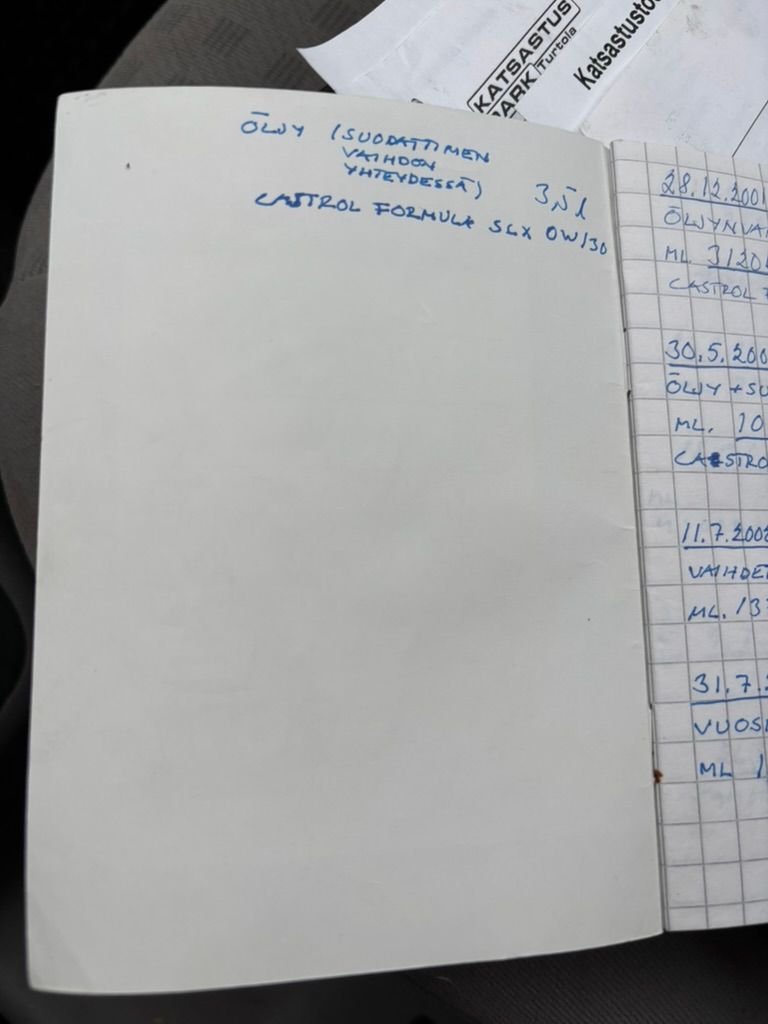 KATSASTUS
PARK Turtola
Katsastusto
ÖLJY (SUODATTIMEN
VAIHDON
YHTEYDESSÄ) 3,5 l
CASTROL FORMULA SLX 0W/30
28.12.2001
ÖLJYNVA
ML 3120
CASTROL F
30.5.200
ÖLJY + SU
ML. 10
CASTRO
11.7.2002
VAIHDE
ML. 13
31.7.
VUOSI
ML 1